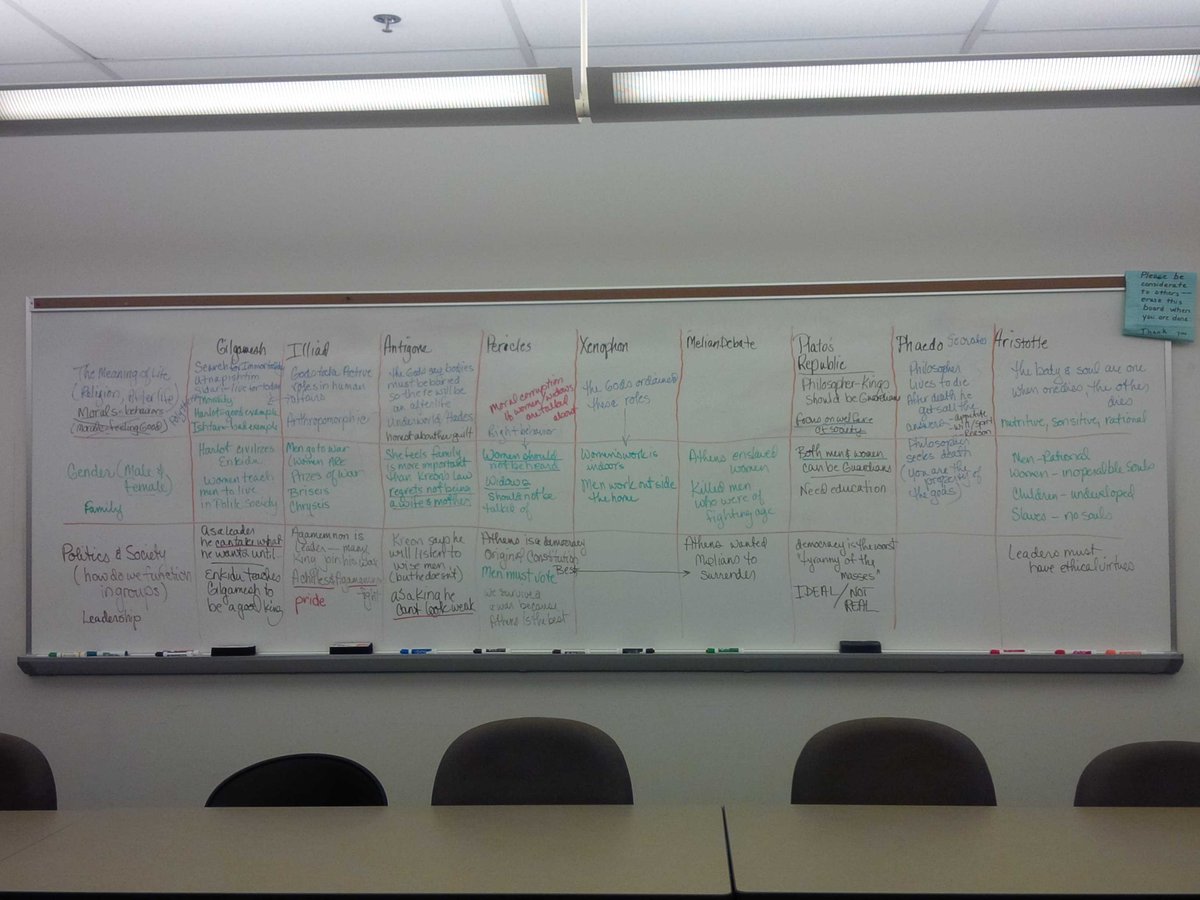 Please be
considerate
to others—
erase this
board when
you are done
Thank you
Gilgamesh
Illiad
Antigone
Pericles
Xenophon
Melian Debate
Plato's
Republic
Phaedo Socrates
Aristotle
The Meaning of Life
(Religion, Afterlife)
Morals = behaviors
(Morale = Feeling Good)
Search for Immortality
Utnapishtim
live for today
Morality
Harlot = good example
Ishtar = bad example
Gods take Active
roles in human
affairs
Anthropomorphic
the Gods say bodies
must be buried
so there will be
an afterlife
Underworld/Hades
honest about her guilt
Moral corruption
if women/widows
are talked
about
Right behavior
the Gods ordained
these roles
Philosopher-Kings
should be Guardians
Focus on welfare
of society
Philosopher
lives to die
After death he
get's all the
answers
The body & soul are one
when one dies, the other
dies
nutritive, sensitive, rational
Gender (Male &
female)
Family
Harlot civilizes
Enkidu
Women teach
men to live
in Polite Society
Men go to war
Women ARE
Prizes of war
Briseis
Chrysis
She feels family
is more important
than Kreon's law
regrets not being
a wife & mother
Women should
not be heard
Widows
should not be
talked of
Womens work is
indoors
Men work outside
the home
Athens enslaved
women
Killed men
who were of
fighting age
Both men & women
can be Guardians
Need education
Philosopher
seeks death
(You are the
property of
the gods)
Men - Rational
Women - inoperable souls
Children - undeveloped
Slaves - no souls
Politics & Society
(how do we function
in groups)
Leadership
As a leader
he can take what
he wants until
Enkidu teaches
Gilgamesh to
be a good king
Agamemnon is
Leader - many
Kings join his
Achilles & Agamemnon
fight
pride
Kreon says he
will listen to
wise men
(but he doesn't)
as a king he
can't look weak
Athens is a democracy
Original Constitution
Best
Men must vote
we survived
war because
Athens is the best
Athens wanted
Melians to
surrender
democracy is the worst
"tyranny of the
masses"
IDEAL / NOT
REAL
Leaders must
have ethical virtues